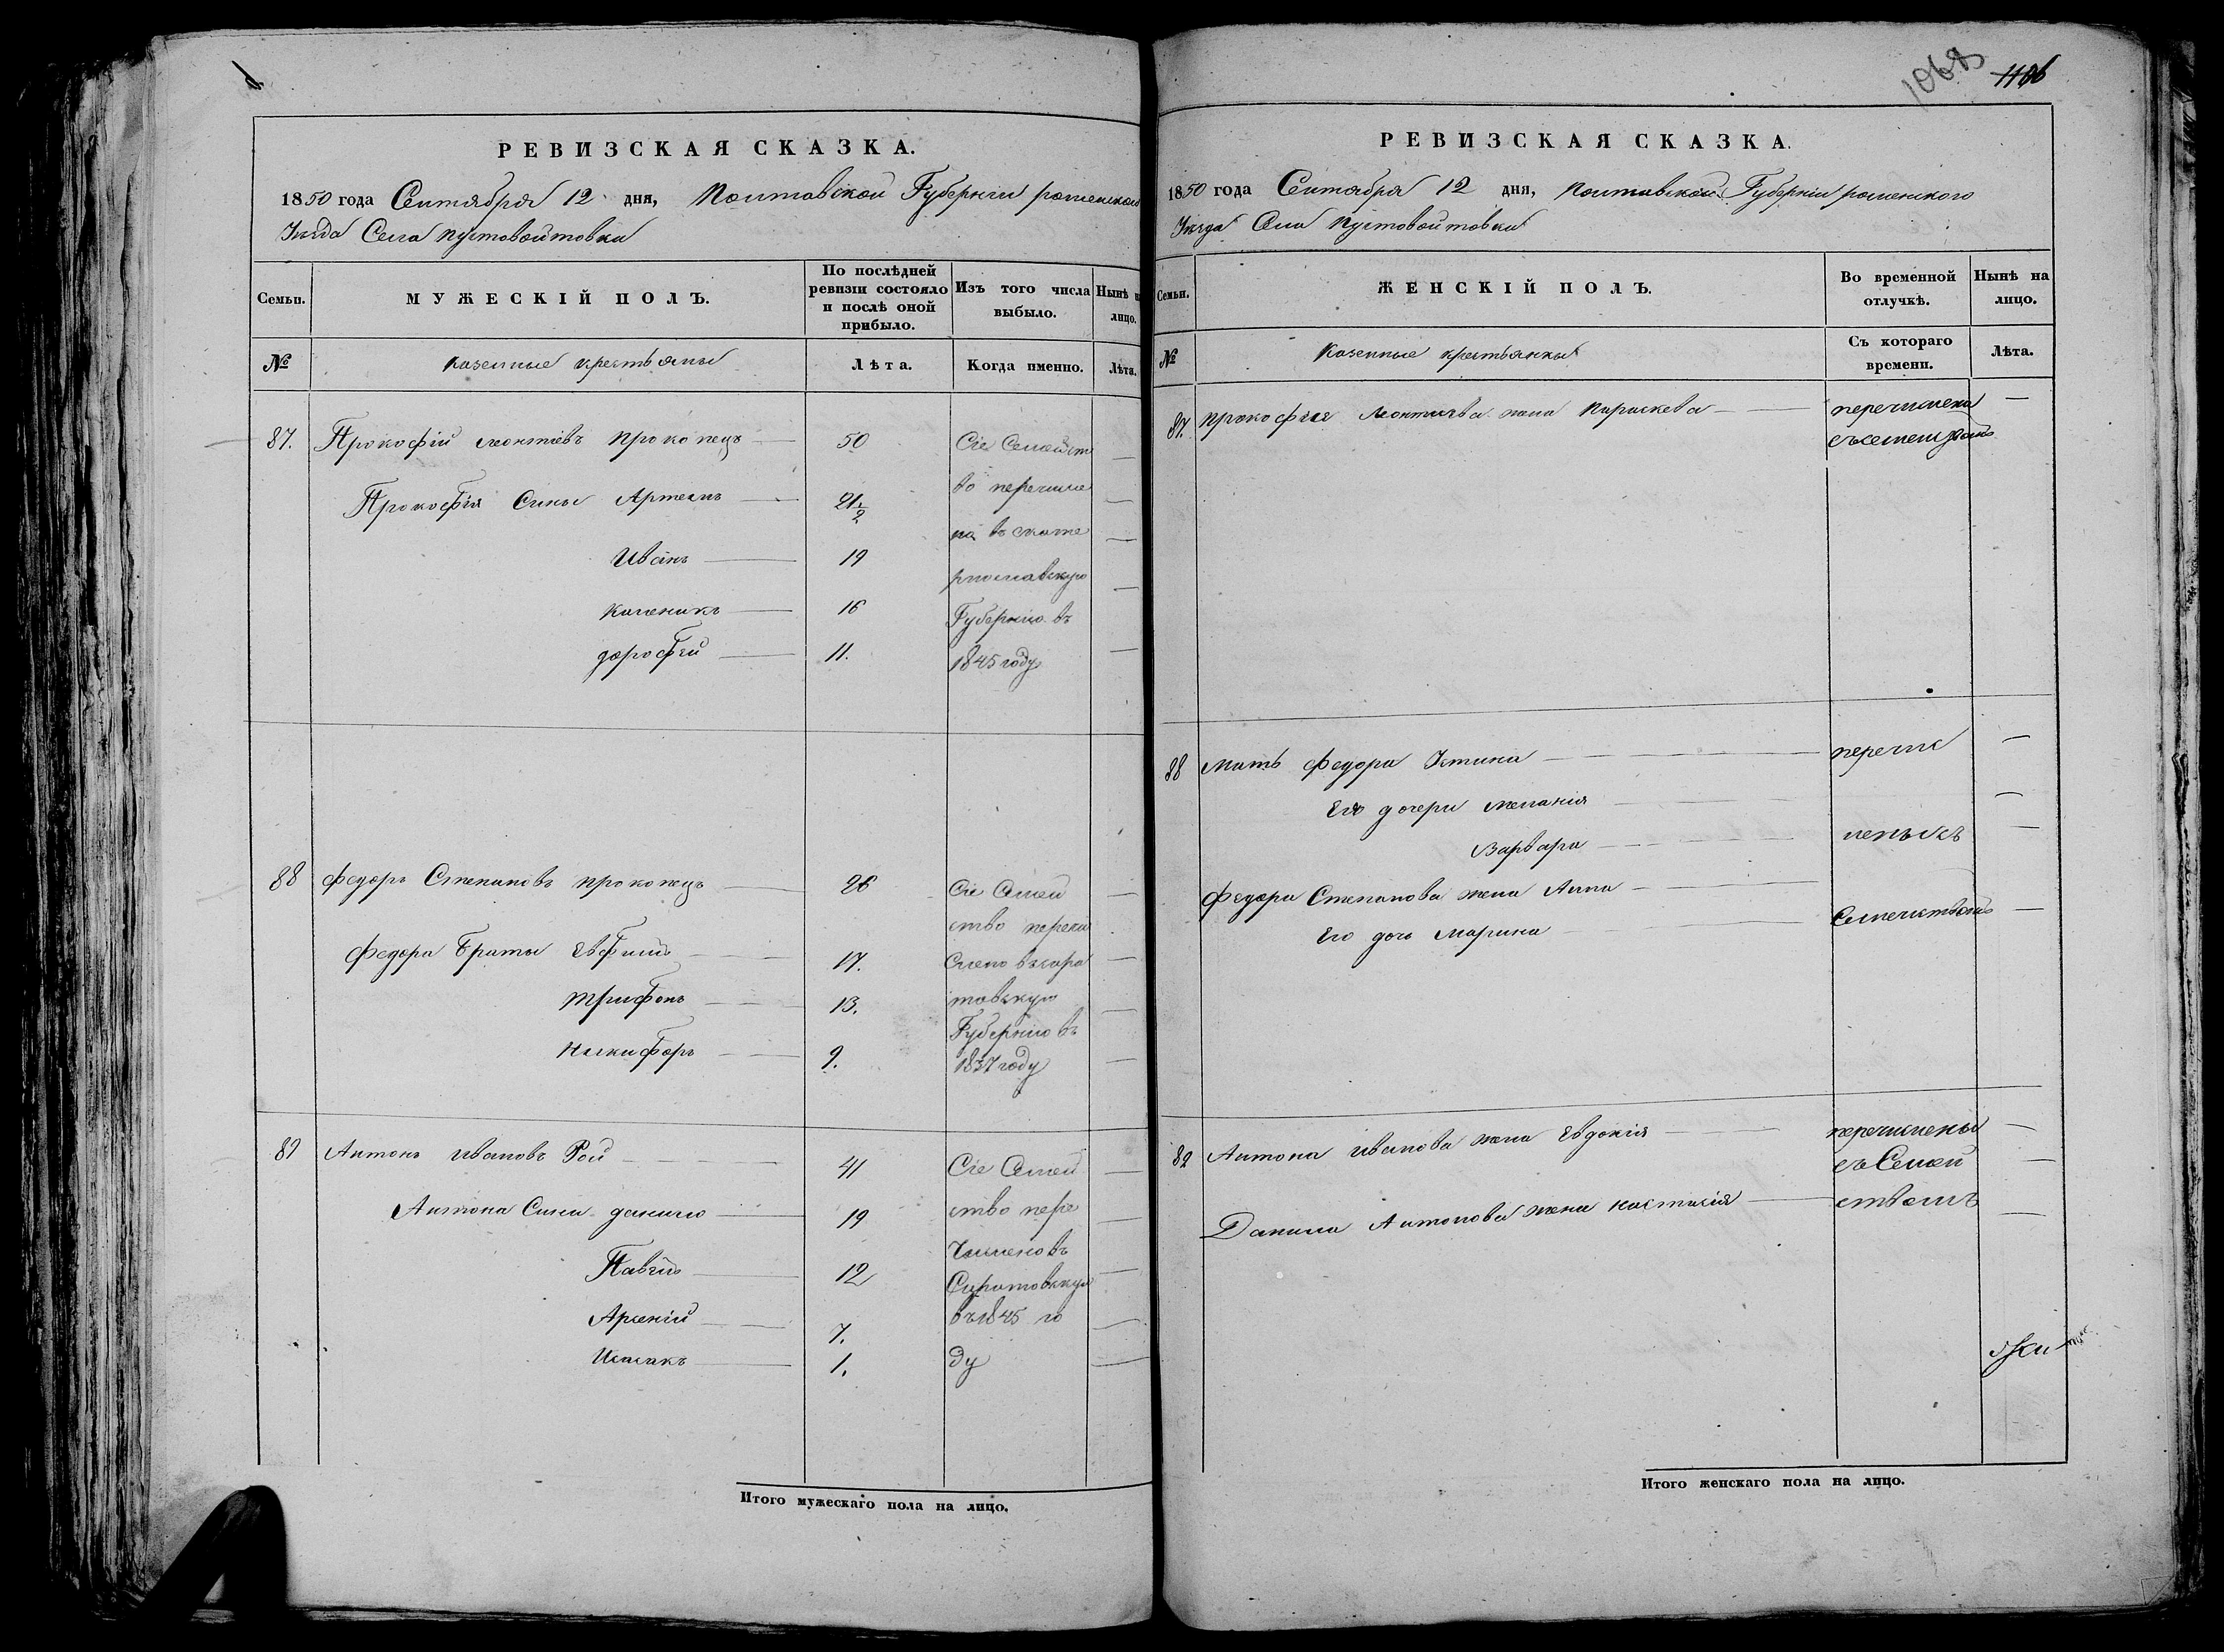 РЕВИЗСКАЯ СКАЗКА.
1850 года Сентября 12 дня, Полтавской Губернии роменского
Уезда Села пустовойтовки
Семьи.
МУЖЕСКІЙ ПОЛЪ.
По послѣдней ревизіи состояло и послѣ оной прибыло.
Изъ того числа выбыло.
Нынѣ н лицо.
№
казенные крестьяны
Лѣта.
Когда именно.
Лѣта.
87. Прокофій леонтіевъ прокопецъ 50 Сіе Семейст
Прокофія Сины Артемъ 21 1/2 во перечисле
Иванъ 19 на въ екате
каленикъ 16 ринославскую
дорофей 11. Губернію въ
1845 году
88 федоръ Степановъ прокопецъ 26 Сіе Семей
ство перечи
федора браты Евфимъ 17. слено въсара
трифонъ 13. товскую
Губернію въ
никифоръ 9. 1837 году
89 Антонъ ивановъ Рой 41 Сіе Семей
Антона Сини данило 19 ство пере
численовъ
Павелъ 12 Саратовскую
Арсеній 7. въ 1845 го
Исаакъ 1. ду
Итого мужескаго пола на лицо.
1068 1186
РЕВИЗСКАЯ СКАЗКА.
1850 года Сентября 12 дня, полтавской Губерніи роменского
Уезда Села пустовойтовки
Семьи.
ЖЕНСКІЙ ПОЛЪ.
Во временной отлучкѣ.
Нынѣ на лицо.
№
казенные крестьянки
Съ котораго времени.
Лѣта.
87. прокофия леонтиева жена параскева перечислена
съсемействомъ
88 мать федора Устина перечис
Его дочери меланія
Варвара ленысъ
федора Степанова жена Анна
Семействомъ
Его дочь марина
89 Антона иванова жена Евдокія перечислены
съ Семей
Данила Антонова жена настасія ствомъ
Итого женскаго пола на лицо.